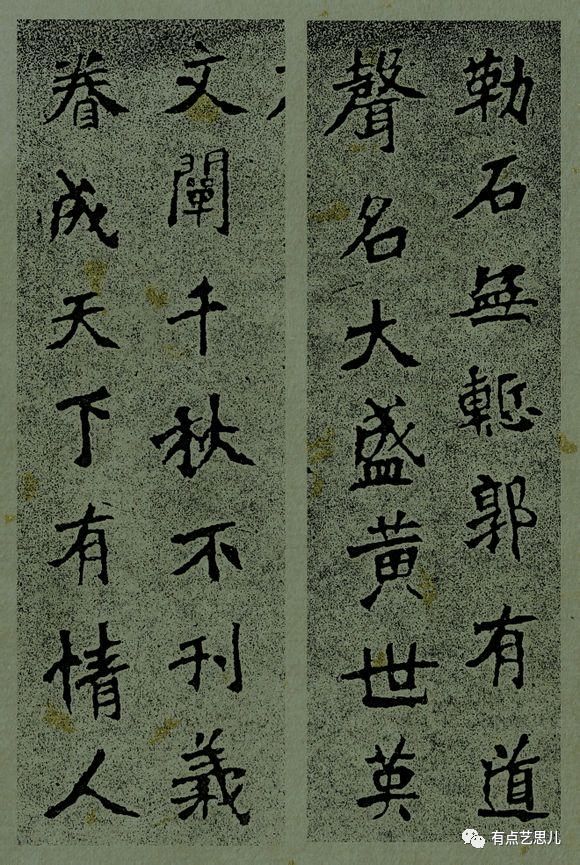 勒石無慙郭有道
聲名大盛黃世英
文闡千秋不刊義
眷成天下有情人
有点艺思儿